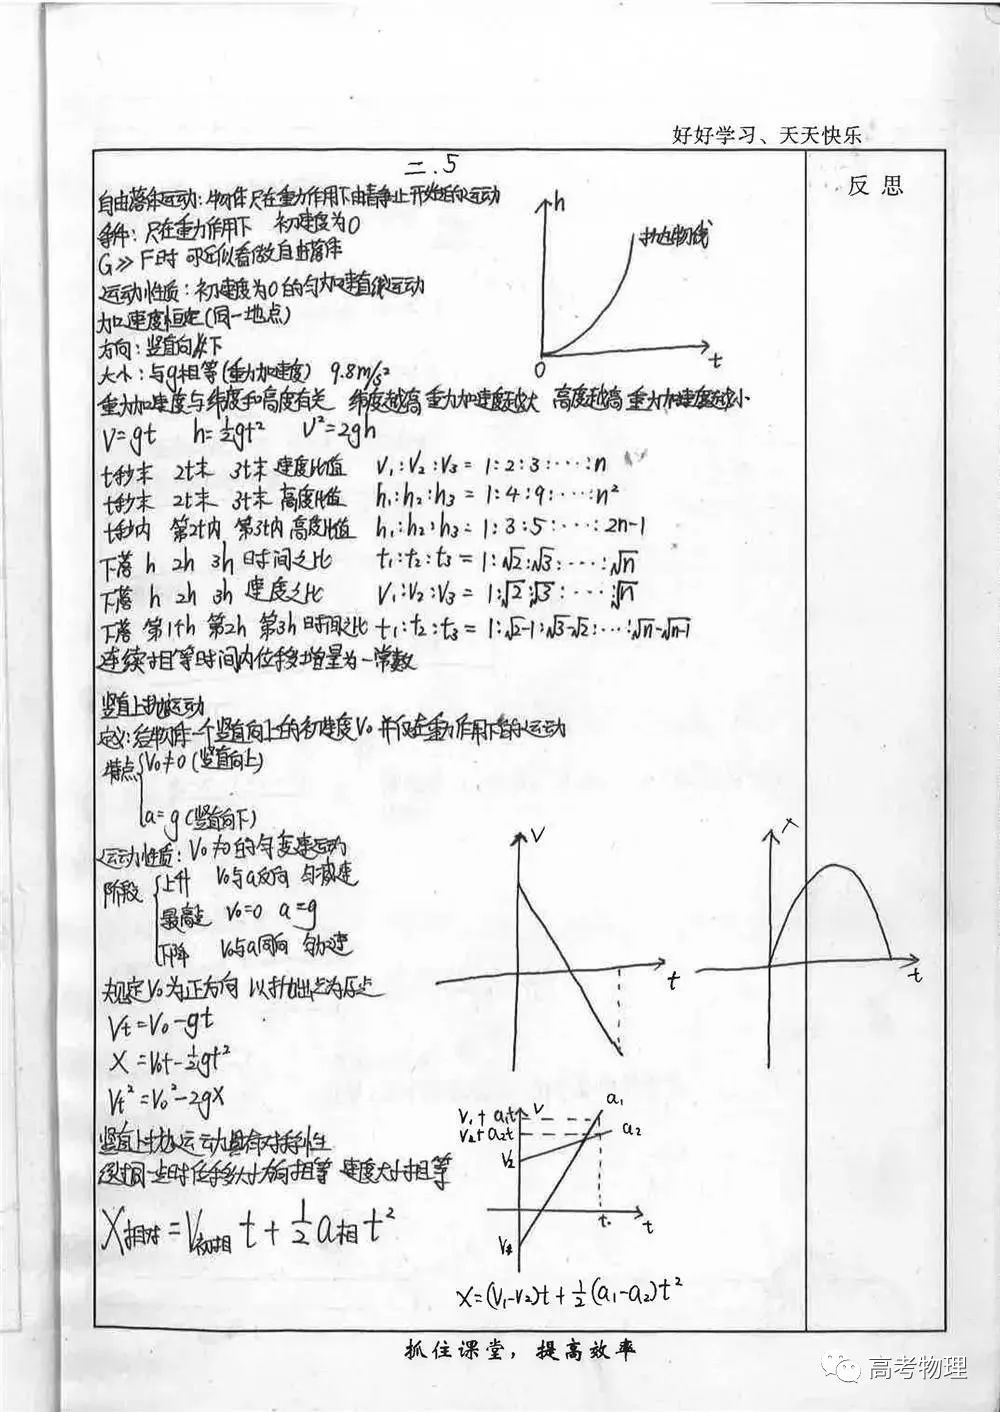 好好学习、天天快乐
反思
二.5
自由落体运动:物体只在重力作用下由静止开始的运动
条件:只在重力作用下 初速度为0
G≫F时 可近似看做自由落体
运动性质:初速度为0的匀加速直线运动
加速度恒定(同一地点)
方向:竖直向下
大小:与g相等(重力加速度) 9.8m/s²
重力加速度与纬度和高度有关 纬度越高重力加速度越大 高度越高重力加速度越小
V=gt h=½gt² V²=2gh
t秒末 2t末 3t末 速度比值 V₁:V₂:V₃=1:2:3:…:n
t秒末 2t末 3t末 高度比值 h₁:h₂:h₃=1:4:9:…:n²
t秒内 第2t内 第3t内 高度比值 h₁:h₂:h₃=1:3:5:…:2n-1
下落 h 2h 3h 时间之比 t₁:t₂:t₃=1:√2:√3:…:√n
下落 h 2h 3h 速度之比 V₁:V₂:V₃=1:√2:√3:…:√n
下落 第1个h 第2h 第3h 时间之比 t₁:t₂:t₃=1:√2-1:√3-√2:…:√n-√n-1
连续相等时间内位移增量为一常数
h
抛物线
0
t
竖直上抛运动
定义:给物体一个竖直向上的初速度V₀并仅在重力作用下的运动
特点
V₀≠0(竖直向上)
a=g(竖直向下)
运动性质:V₀为的匀变速运动
阶段
上升 V₀与a反向 匀减速
最高点 V₀=0 a=g
下降 V₀与a同向 匀加速
规定V₀为正方向 以抛出点为原点
Vt=V₀-gt
X=V₀t-½gt²
Vt²=V₀²-2gX
竖直上抛运动具有对称性
经过同一点时位移大小方向相等 速度大小相等
X相对=V初相t+½a相t²
V
t
X
t
V₁+a₁t
V₂+a₂t
V
a₁
a₂
V₂
t
t
X=(V₁-V₂)t+½(a₁-a₂)t²
抓住课堂,提高效率
高考物理